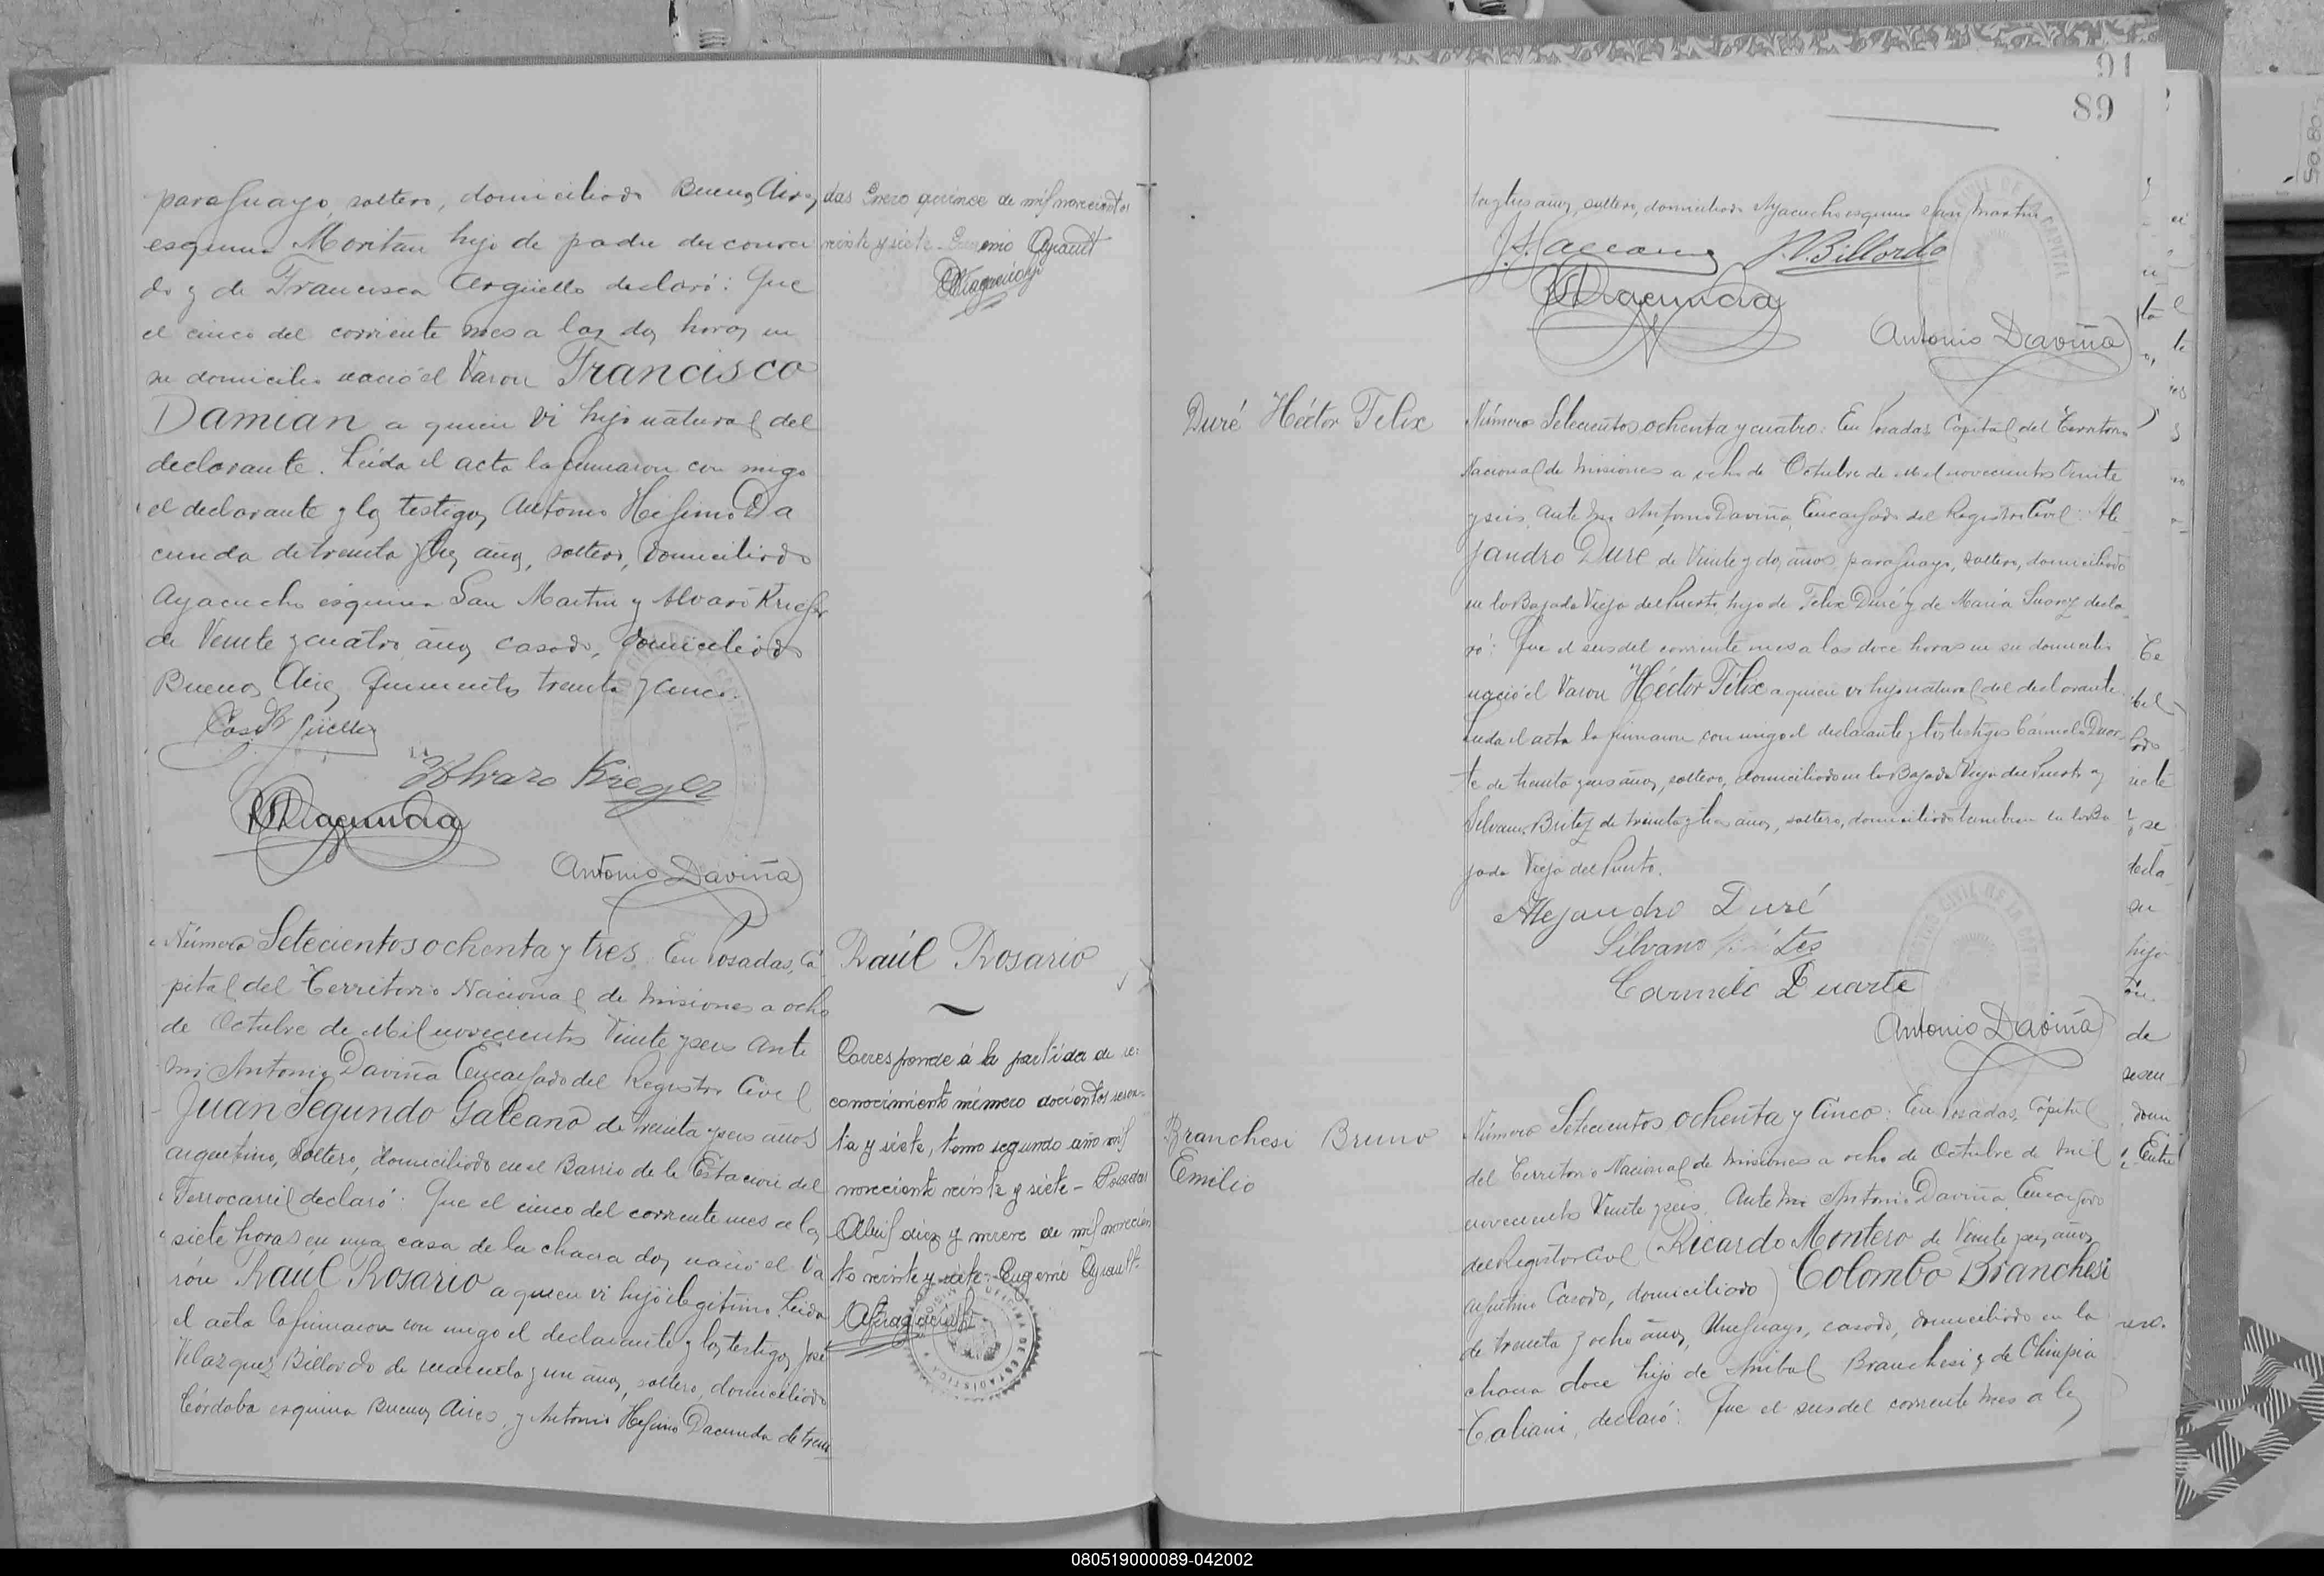 paraguayo, soltero, domiciliado Buenos Aires
esquina Moritán hijo de padre desconoci
do y de Francisca Argüello declaró: Que
el cinco del corriente mes a las dos horas en
su domicilio nació el Varon Francisco
Damian a quien vi hijo natural del
declarante. Leida el acta la firmaron con migo
el declarante y los testigos Antonio Higinio Da
cunda de treinta y tres años, soltero, domiciliado
Ayacucho esquina San Martin y Alvaro Krieger
de Veinte y cuatro años casado, domiciliado
Buenos Aires quinientos treinta y cinco.
Alvaro Krieger
Antonio Daviña
das Enero quince de mil novecientos
veinte y siete - Eugenio Ayrault
Número Setecientos ochenta y tres. En Posadas, Ca
pital del Territorio Nacional de Misiones a ocho
de Octubre de Mil novecientos Veinte y seis Ante
mi Antonio Daviña Encargado del Registro Civil
Juan Segundo Galeano de treinta y seis años
argentino, Soltero, domiciliado en el Barrio de la Estacion del
Ferrocarril declaró: Que el cinco del corriente mes a las
siete horas en una casa de la chacra dos nació el Va
rón Raúl Rosario a quien vi hijo ilegitimo. Leida
el acta la firmaron con migo el declarante y los testigos José
Velazquez Billordo de cuarenta y un años, soltero, domiciliado
Córdoba esquina Buenos Aires y Antonio Higinio Dacunda de trein
Raúl Rosario
Corresponde á la partida de re-
conocimiento número docientos sesen-
ta y siete, tomo segundo año mil
novecientos veinte y siete - Posadas
Abril diez y nueve de mil novecien
tos veinte y siete. Eugenio Ayrault
91
89
ta y tres años, soltero, domiciliado Ayacucho esquina San Martin
J. S. Galeano J. V. Billordo
Antonio Daviña
Duré Héctor Felix
Número Setecientos ochenta y cuatro: En Posadas Capital del Territorio
Nacional de Misiones a ocho de Octubre de Mil novecientos Veinte
y seis, Ante Mi Antonio Daviña, Encargado del Registro Civil: Ale
jandro Duré de Veinte y dos años, paraguayo, soltero, domiciliado
en la Bajada Vieja del Puerto, hijo de Felix Duré y de Maria Suarez decla
ró: Que el seis del corriente mes a las doce horas en su domicilio
nació el Varon Héctor Félix a quien vi hijo natural del declarante
Leida el acta la firmaron con migo el declarante y los testigos Carmelo Duar
te de treinta y seis años, soltero, domiciliado en la Bajada Vieja del Puerto y
Silvano Britez de treinta y tres años, soltero, domiciliado tambien en la Ba
jada Vieja del Puerto.
Alejandro Duré
Silvano
Carmelo Duarte
Antonio Daviña
Branchesi Bruno
Emilio
Número Setecientos ochenta y Cinco: En Posadas, Capital
del Territorio Nacional de Misiones a ocho de Octubre de Mil
novecientos Veinte y seis. Ante Mi Antonio Daviña Encargado
del Registro Civil (Ricardo Montero de Veinte y seis años
argentino Casado, domiciliado) Colombo Branchesi
de treinta y ocho años, Uruguayo, casado, domiciliado en la
chacra doce hijo de Anibal Branchesi y de Olimpia
Galiani, declaró: Que el seis del corriente mes a las
080519000089-042002